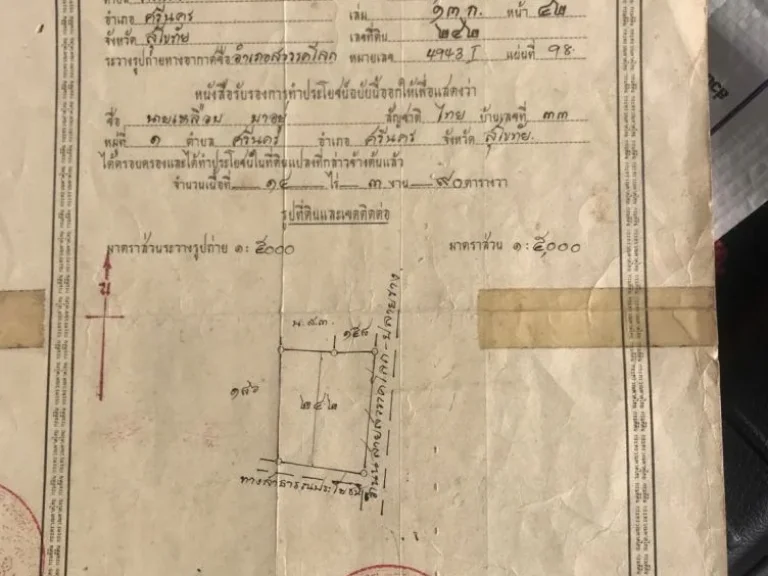 อำเภอ ศรีนคร เล่ม ๑๓ ก. หน้า ๔๒
จังหวัด สุโขทัย เลขที่ดิน ๒๔๒
ระวางรูปถ่ายทางอากาศชื่อ อำเภอสวรรคโลก หมายเลข 4943 I แผ่นที่ 98
หนังสือรับรองการทำประโยชน์ฉบับนี้ออกให้เพื่อแสดงว่า
ชื่อ นายเหลือม มาอยู่ สัญชาติ ไทย บ้านเลขที่ ๓๓
หมู่ที่ ๑ ตำบล ศรีนคร อำเภอ ศรีนคร จังหวัด สุโขทัย.
ได้ครอบครองและได้ทำประโยชน์ในที่ดินแปลงที่กล่าวข้างต้นแล้ว
จำนวนเนื้อที่ ๑๔ ไร่ ๓ งาน ๙๐ ตารางวา
รูปที่ดินและเขตติดต่อ
มาตราส่วนระวางรูปถ่าย ๑ : ๕๐๐๐ มาตราส่วน ๑ : ๕,๐๐๐
น
น.ส.๓.
๒๔๒
ทางสาธารณประโยชน์
ถนนสายสวรรคโลก-ปลายราง